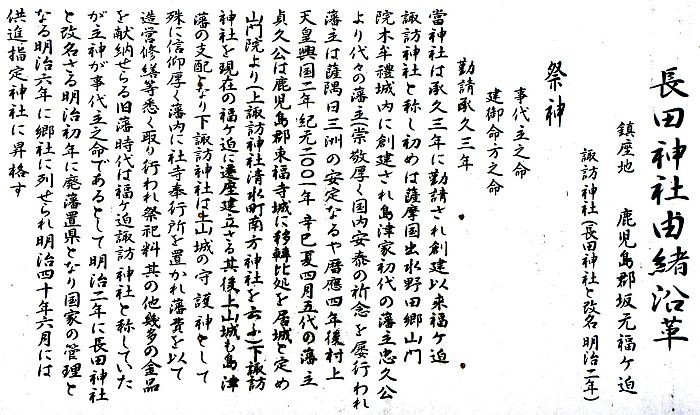 長田神社由緒沿革
鎮座地　鹿児島郡坂元福ヶ迫
諏訪神社(長田神社と改名 明治二年)
祭神
事代主之命
建御命方之命
勤請承久三年
當神社は承久三年に勤請され創建以来福ヶ迫
諏訪神社と称し初めは薩摩国出水野田郷山門
院木牟禮城内に創建され島津家初代の藩主忠久公
より代々の藩主崇敬厚く国内安泰の祈念を屡行われ
藩主は薩隅日三洲の安定なるや暦應四年後村上
天皇興国二年 紀元二〇〇一年 辛巳夏四月五代の藩主
貞久公は鹿児島郡東福寺城に移轉此処を居城と定め
山門院より(上諏訪神社清水町南方神社を云ふ)下諏訪
神社を現在の福ヶ迫に遷座建立さる其後上山城も島津
藩の支配となり下諏訪神社は上山城の守護神として
殊に信仰厚く藩内に社寺奉行所を置かれ藩費を以て
造営修繕等悉く取り行われ祭祀料其の他幾多の金品
を献納せらる旧藩時代は福ヶ迫諏訪神社と称していた
が主神が事代主之命であるとして明治二年に長田神社
と改名さる明治初年に廃藩置県となり国家の管理と
なる明治六年に郷社に列せられ明治四十年六月には
供進指定神社に昇格す